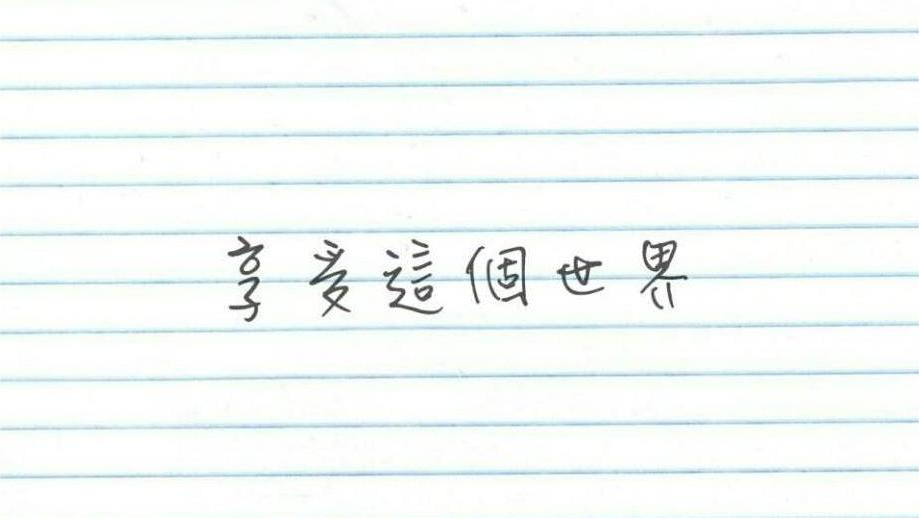 享受這個世界